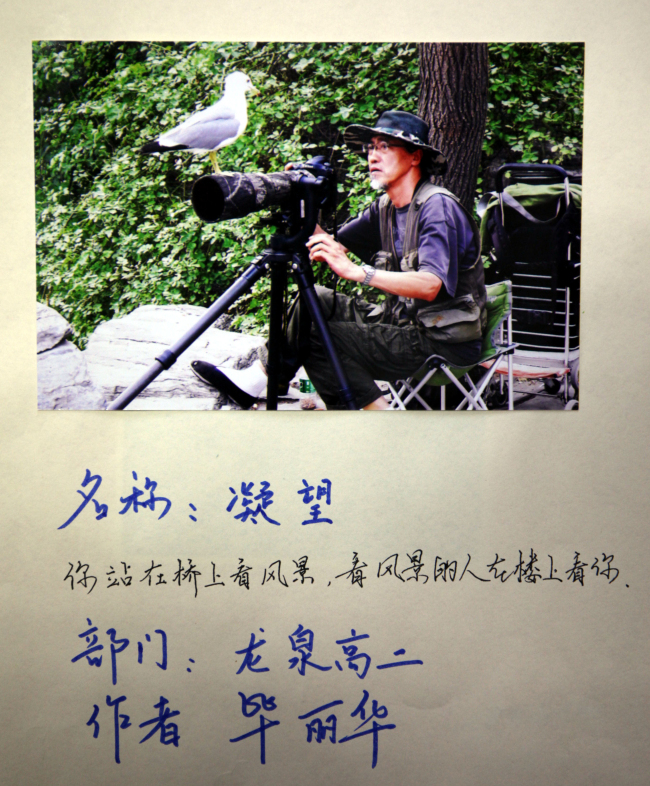 名称：凝望
你站在桥上看风景，看风景的人在楼上看你.
部门：龙泉高二
作者 毕丽华